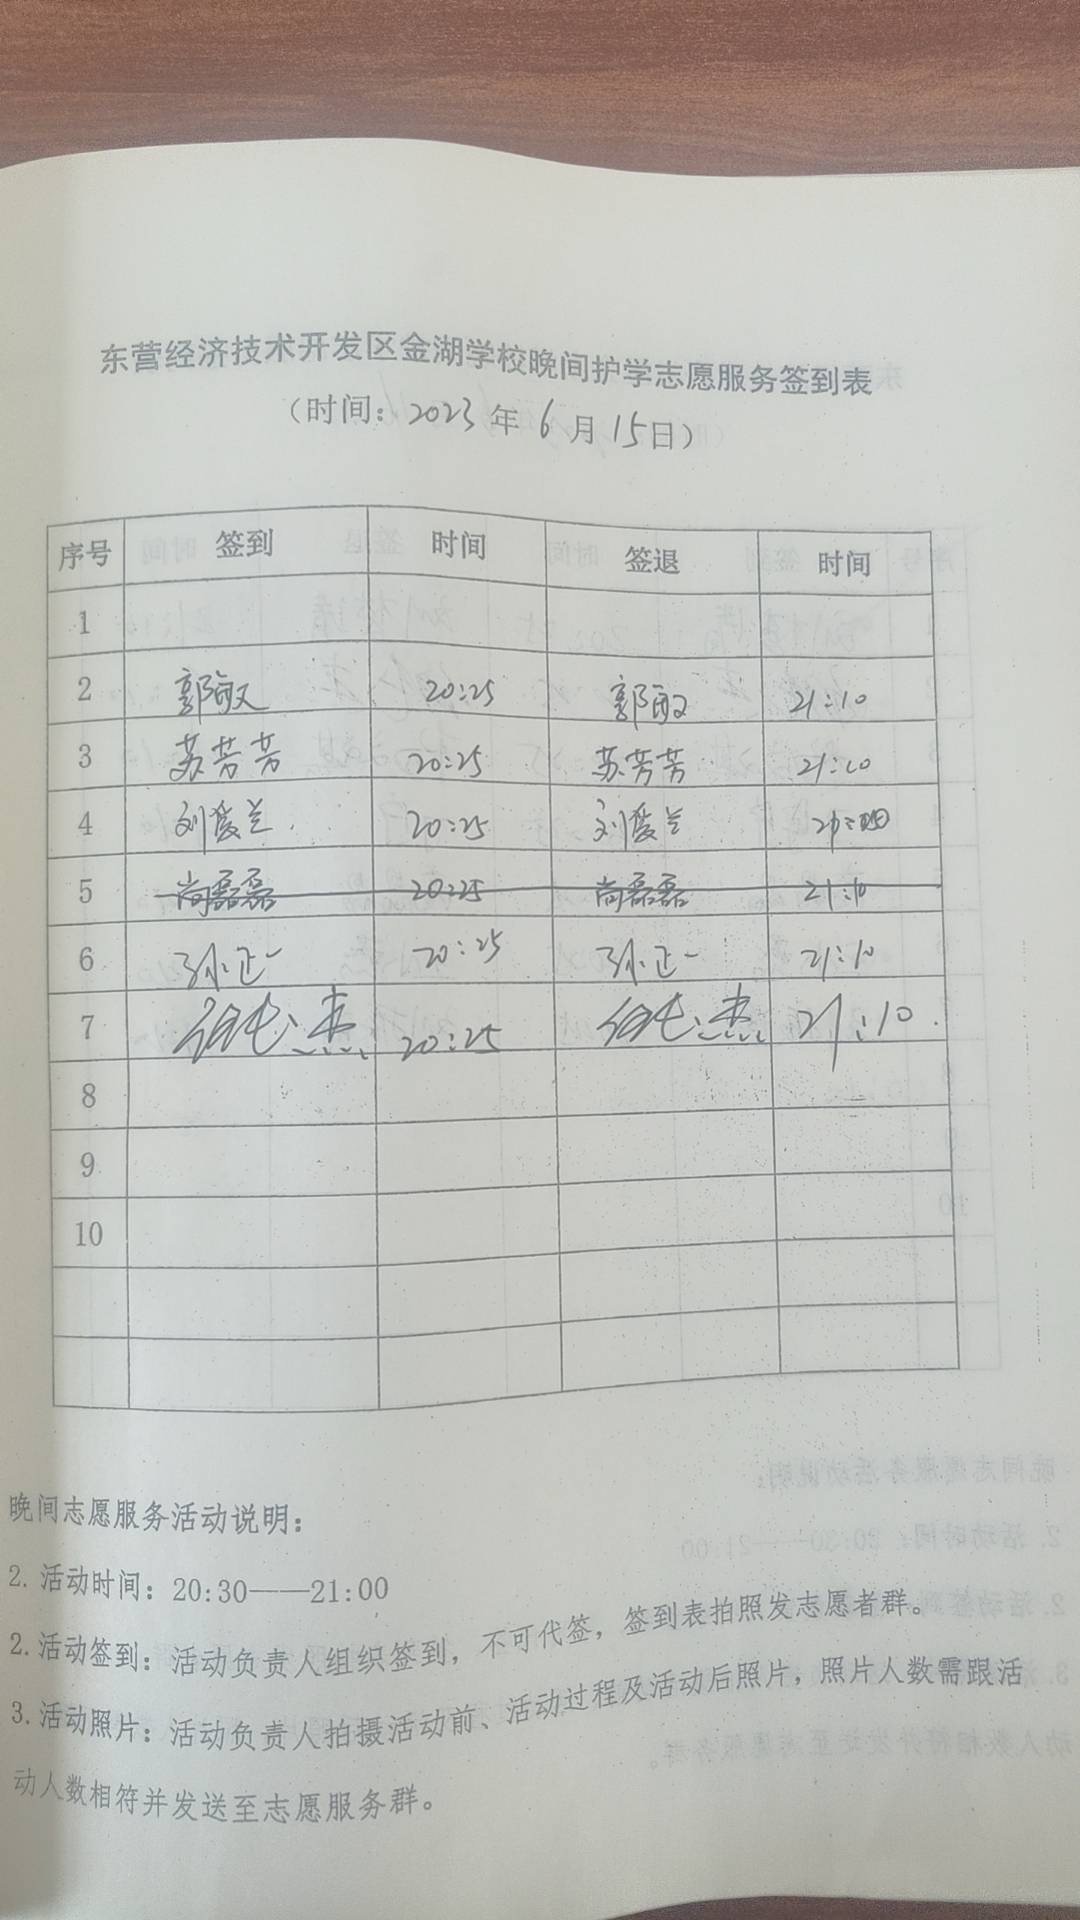 东营经济技术开发区金湖学校晚间护学志愿服务签到表
（时间：2023年6月15日）
序号 签到 时间 签退 时间
1
2 郭敏 20:25 郭敏 21:10
3 苏芳芳 20:25 苏芳芳 21:10
4 刘爱兰 20:25 刘爱兰
5 尚磊磊 20:25 尚磊磊 21:10
6 孙正一 20:25 孙正一 21:10
7 20:25 21:10
8
9
10
晚间志愿服务活动说明：
2.活动时间：20:30——21:00
2.活动签到：活动负责人组织签到，不可代签，签到表拍照发志愿者群。
3.活动照片：活动负责人拍摄活动前、活动过程及活动后照片，照片人数需跟活
动人数相符并发送至志愿服务群。